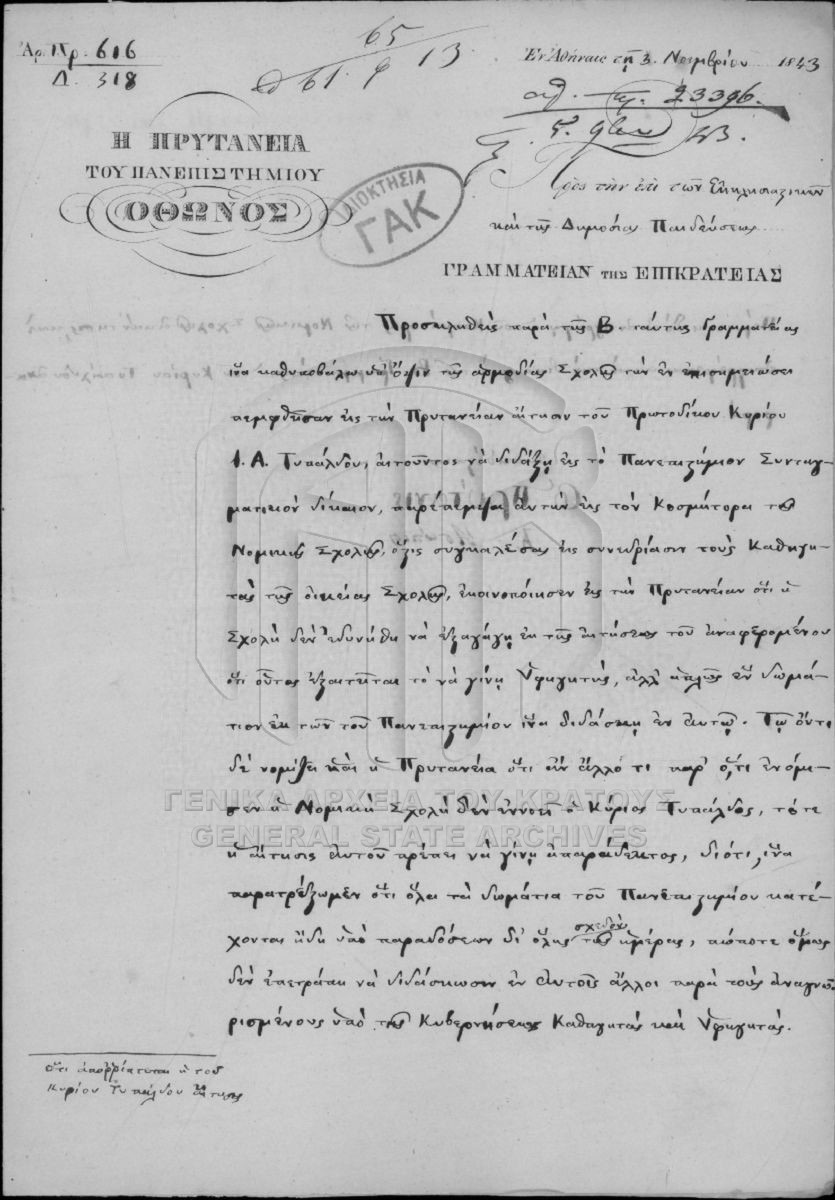 Ἀρ. Πρ. 616
Δ. 318
65
61. φ 13
Ἐν Ἀθήναις τῇ 3. Νοεμβρίου 1843
23396.
43.
Η ΠΡΥΤΑΝΕΙΑ
ΤΟΥ ΠΑΝΕΠΙΣΤΗΜΙΟΥ
ΟΘΩΝΟΣ
ΙΔΙΟΚΤΗΣΙΑ
ΓΑΚ
Πρὸς τὴν ἐπὶ τῶν Ἐκκλησιαστικῶν
καὶ τῆς Δημοσίας Παιδεύσεως
ΓΡΑΜΜΑΤΕΙΑΝ ΤΗΣ ΕΠΙΚΡΑΤΕΙΑΣ
Προσκληθεὶς παρὰ τῆς Β. ταύτης Γραμματείας
ἵνα καθυποβάλω ὑπ' ὄψιν τῆς ἁρμοδίας Σχολῆς τὴν ἐν ἐπισημειώσει
πεμφθεῖσαν εἰς τὴν Πρυτανείαν αἴτησιν τοῦ Πρωτοδίκου Κυρίου
Ι. Α. Τυπάλδου, αἰτοῦντος νὰ διδάξῃ εἰς τὸ Πανεπιστήμιον Συνταγ-
ματικὸν δίκαιον, παρέπεμψα αὐτὴν εἰς τὸν Κοσμήτορα τῆς
Νομικῆς Σχολῆς, ὅστις συγκαλέσας εἰς συνεδρίασιν τοὺς Καθηγη-
τὰς τῆς οἰκείας Σχολῆς, ἐκοινοποίησεν εἰς τὴν Πρυτανείαν ὅτι ἡ
Σχολὴ δὲν ἐδυνήθη νὰ ἐξαγάγῃ ἐκ τῆς αἰτήσεως τοῦ ἀναφερομένου
ὅτι οὗτος ἐξαιτεῖται τὸ νὰ γίνῃ Ὑφηγητὴς, ἀλλ' ἁπλῶς ἓν δωμά-
τιον ἐκ τῶν τοῦ Πανεπιστημίου ἵνα διδάσκῃ ἐν αὐτῷ. Τῷ ὄντι
δὲ νομίζει καὶ ἡ Πρυτανεία ὅτι ἂν ἄλλο τι παρ' ὅ,τι ἐνόμι-
σεν ἡ Νομικὴ Σχολὴ δὲν ἐννοεῖ ὁ Κύριος Τυπάλδος, τότε
ἡ αἴτησις αὐτοῦ πρέπει νὰ γίνῃ ἀπαράδεκτος, διότι, ἵνα
παρατρέξωμεν ὅτι ὅλα τὰ δωμάτια τοῦ Πανεπιστημίου κατέ-
χονται ἤδη ὑπὸ παραδόσεων δι' ὅλης σχεδὸν τῆς ἡμέρας, πώποτε ὅμως
δὲν ἐπετράπη νὰ διδάσκωσιν ἐν αὐτοῖς ἄλλοι παρὰ τοὺς ἀναγνω-
ρισμένους ὑπὸ τῆς Κυβερνήσεως Καθηγητὰς καὶ Ὑφηγητάς.
ΓΕΝΙΚΑ ΑΡΧΕΙΑ ΤΟΥ ΚΡΑΤΟΥΣ
GENERAL STATE ARCHIVES
Ὅτι ἀπορρίπτεται ἡ τοῦ
Κυρίου Τυπάλδου αἴτησις